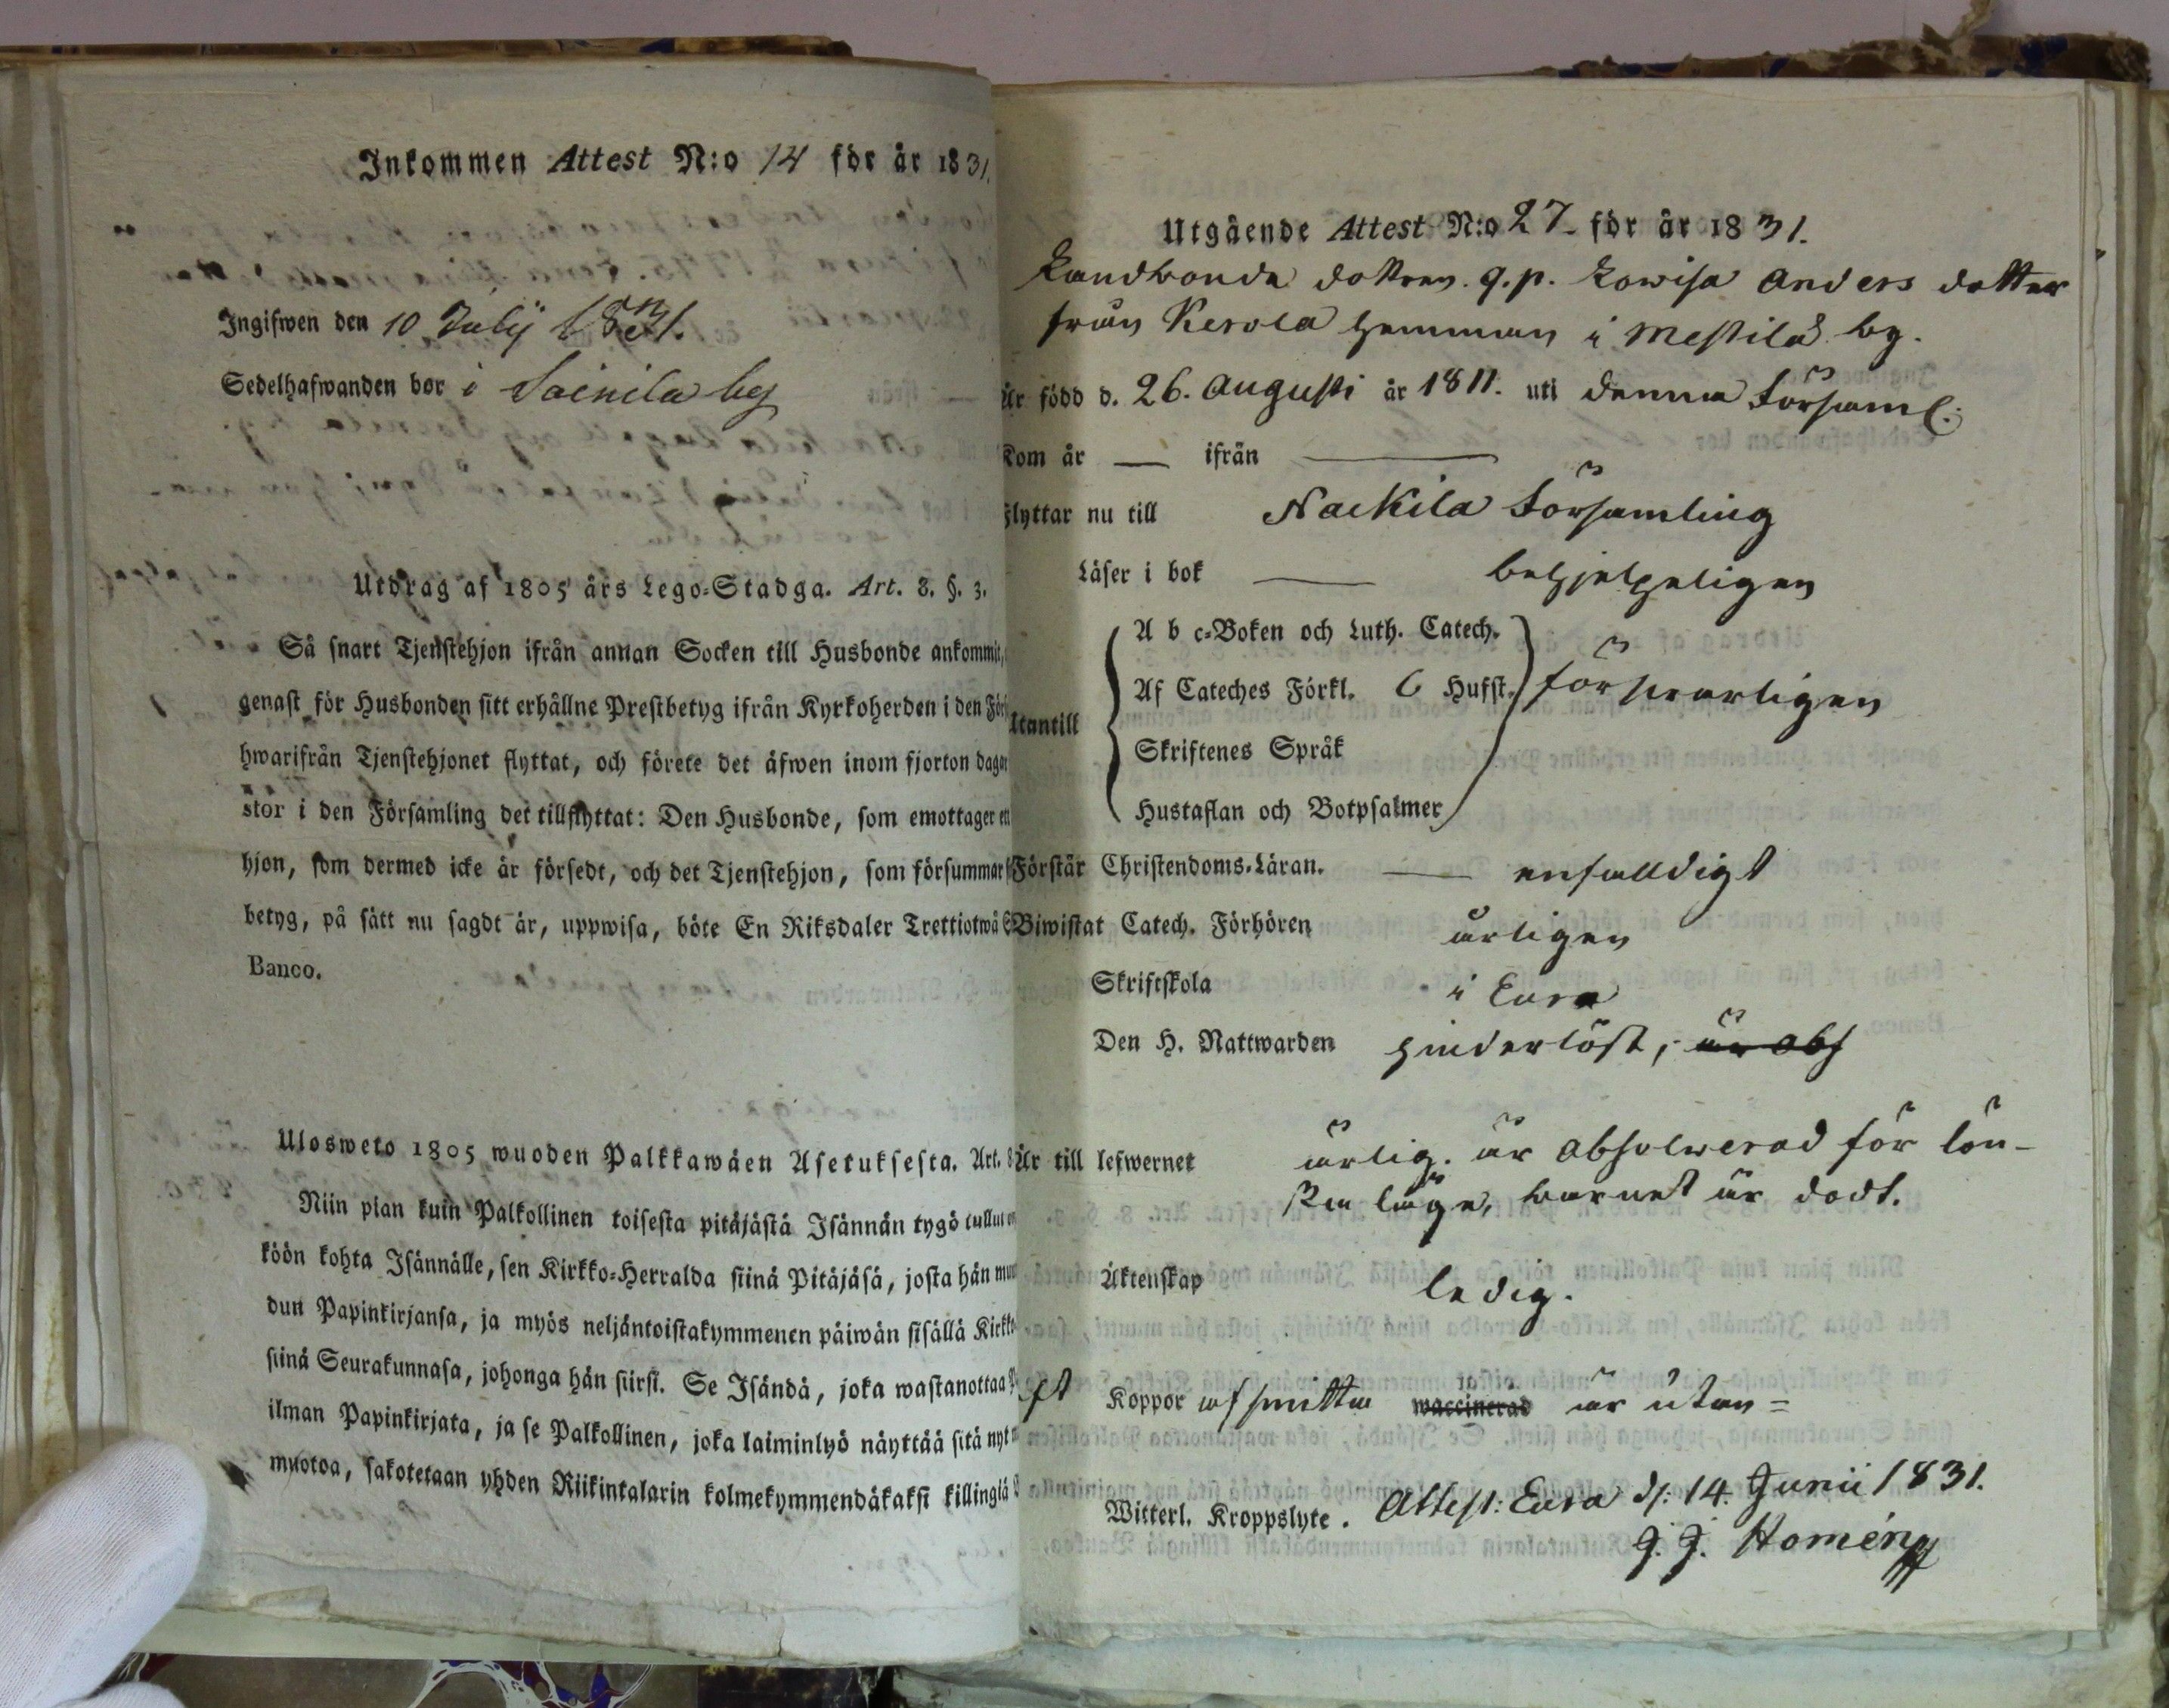 Inkommen Attest N:o 14 för år 1831.
Ingifwen den 10 Julij 1831.
Sedelhafwanden bor i Soinila by
Utdrag af 1805 års Lego-Stadga. Art. 8. §. 3.
Så snart Tjenstehjon ifrån annan Socken till Husbonde ankommit,
genast för Husbonden sitt erhållne Prestbetyg ifrån Kyrkoherden i den För
hwarifrån Tjenstehjonet flyttat, och förete det äfwen inom fjorton dagar
stor i den Församling det tillflyttat: Den Husbonde, som emottager en
hjon, som dermed icke är försedt, och det Tjenstehjon, som försummar
betyg, på sätt nu sagdt är, uppwisa, böte En Riksdaler Trettiotwå
Banco.
Ulosweto 1805 wuoden Palkkawäen Asetuksesta. Art. 8
Niin pian kuin Palkollinen toisesta pitäjästä Isännän tygö tullut
köön kohta Isännälle, sen Kirkko-Herralda siinä Pitäjäsä, josta hän muu
dun Papinkirjansa, ja myös neljäntoistakymmenen päiwän sisällä Kirkko
siinä Seurakunnasa, johonga hän siirsi. Se Isändä, joka wastanottaa
ilman Papinkirjata, ja se Palkollinen, joka laiminlyö näyttää sitä nyt
muotoa, sakotetaan yhden Riikintalarin kolmekymmendäkaksi killingiä
Utgående Attest N:o 27 för år 1831.
Landbonde dottren. q.p. Lowisa Anders dotter
från Kerola hemman i Mestilä by.
Är född d. 26. Augusti år 1811. uti denna Församl:
Kom år — ifrån —
Flyttar nu till Nackila Församling
Läser i bok — behjelpeligen
A b c-Boken och Luth. Catech.
Af Cateches Förkl. 6 Husst. försvarligen
Utantill
Skriftenes Språk
Hustaflan och Botpsalmer
Förstår Christendoms-Läran. — enfalldigt
Biwistat Catech. Förhören årligen
Skriftskola i Eura
Den H. Nattwarden hinderlöst, är abs
Är till lefwernet ärlig. är absolwerad för lön-
ska läge, barnet är dödt.
Äktenskap ledig.
Koppor af smitta waccinerad är utan =
Witterl. Kroppslyte. Attest: Eura d: 14. Junii 1831.
G. J. Homén